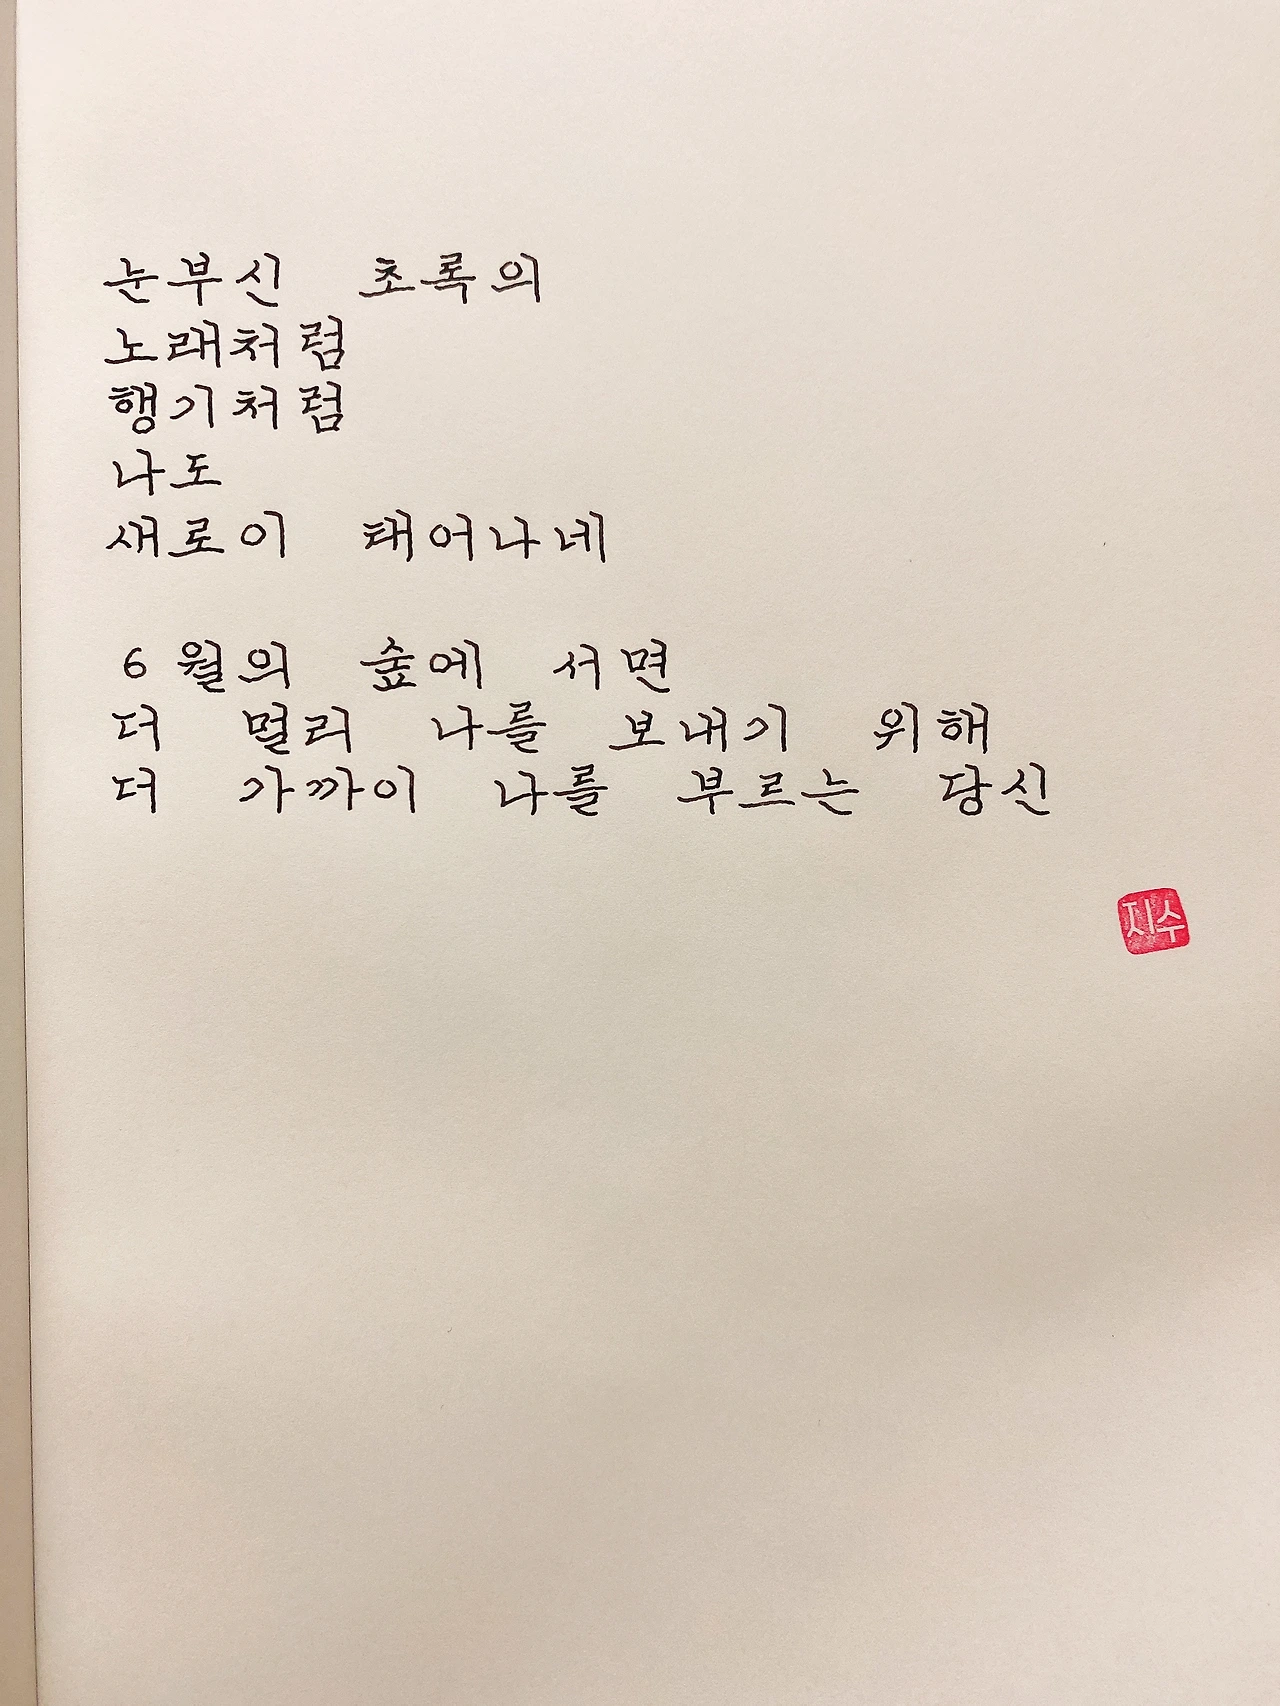 눈부신 초록의
노래처럼
향기처럼
나도
새로이 태어나네
6월의 숲에 서면
더 멀리 나를 보내기 위해
더 가까이 나를 부르는 당신
지수